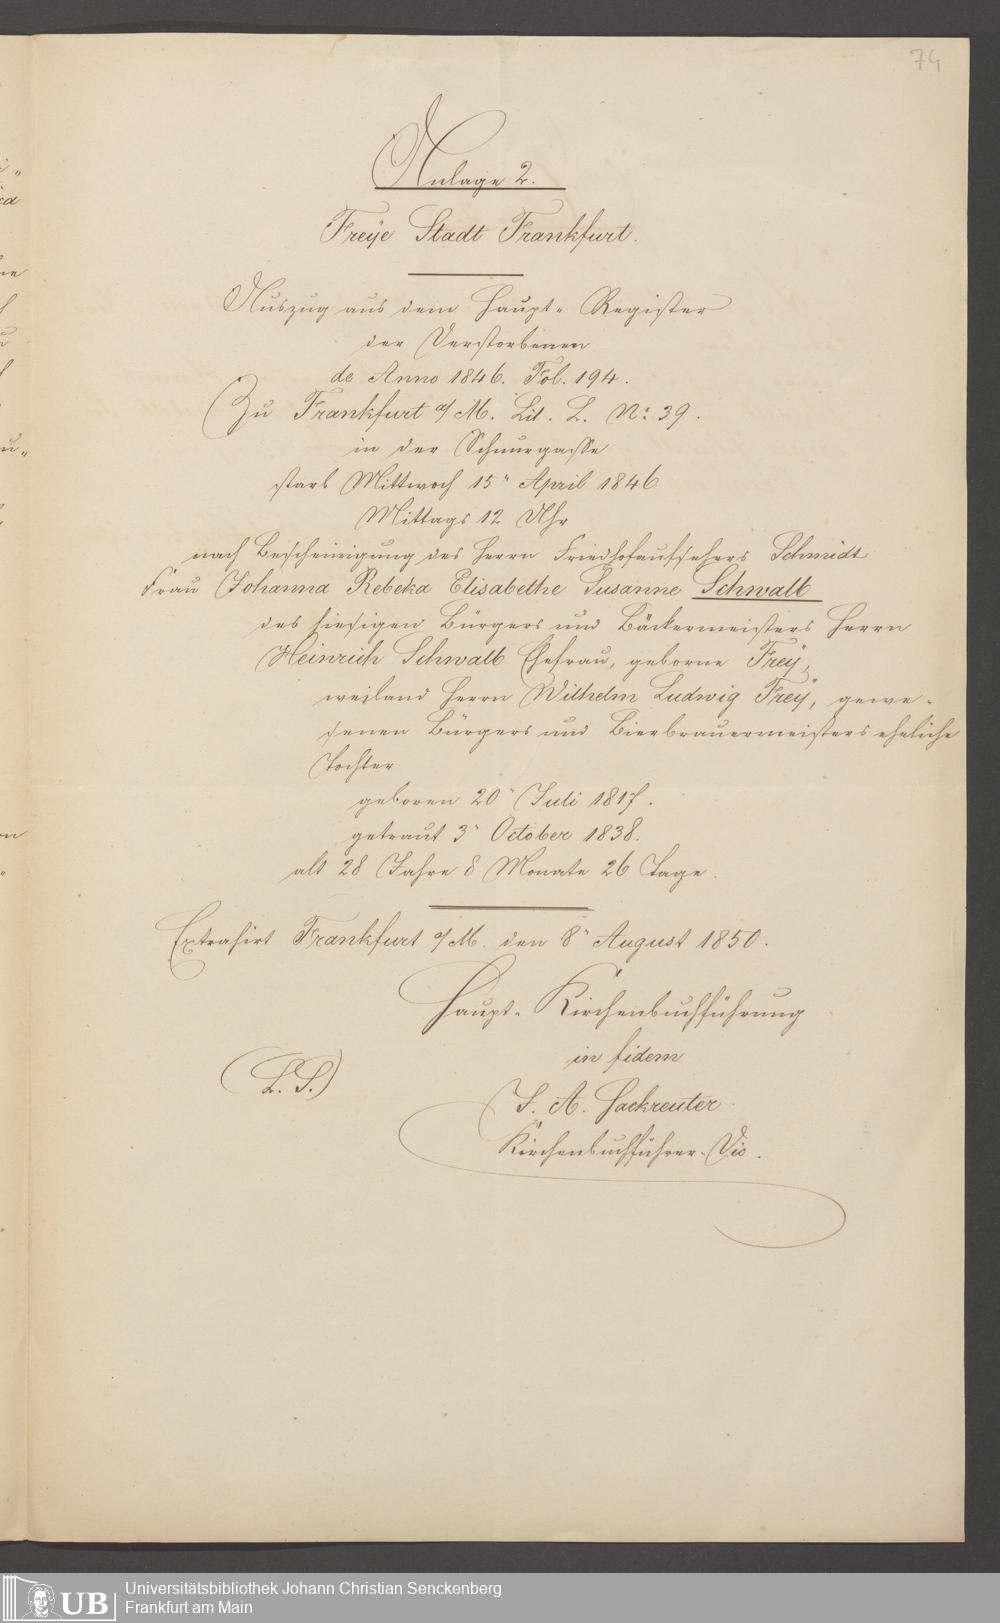 74
Anlage 2.
Freÿe Stadt Frankfurt.
Auszug aus dem Haupt-Register
der Verstorbenen
de Anno 1846. Fol. 194.
Zu Frankfurt a/M. Lit. L. No: 39.
in der Schnurgasse
starb Mittwoch 15" April 1846
Mittags 12 Uhr
nach Bescheinigung des Herrn Friedhofaufsehers Schmidt
Frau Johanna Rebeka Elisabethe Susanne Schwalb
des hiesigen Bürgers und Bäckermeisters Herrn
Heinrich Schwalb Ehefrau, geborne Freÿ,
weiland Herrn Wilhelm Ludwig Freÿ, gewe-
senen Bürgers und Bierbrauermeisters eheliche
Tochter
geboren 20" Juli 1817.
getraut 3" October 1838.
alt 28 Jahre 8 Monate 26 Tage.
Extrahirt Frankfurt a/M. den 8" August 1850.
Haupt-Kirchenbuchführung
in fidem
(L. S.)
J. A. Hackreuter
Kirchenbuchführer-Vic.
UB
Universitätsbibliothek Johann Christian Senckenberg
Frankfurt am Main